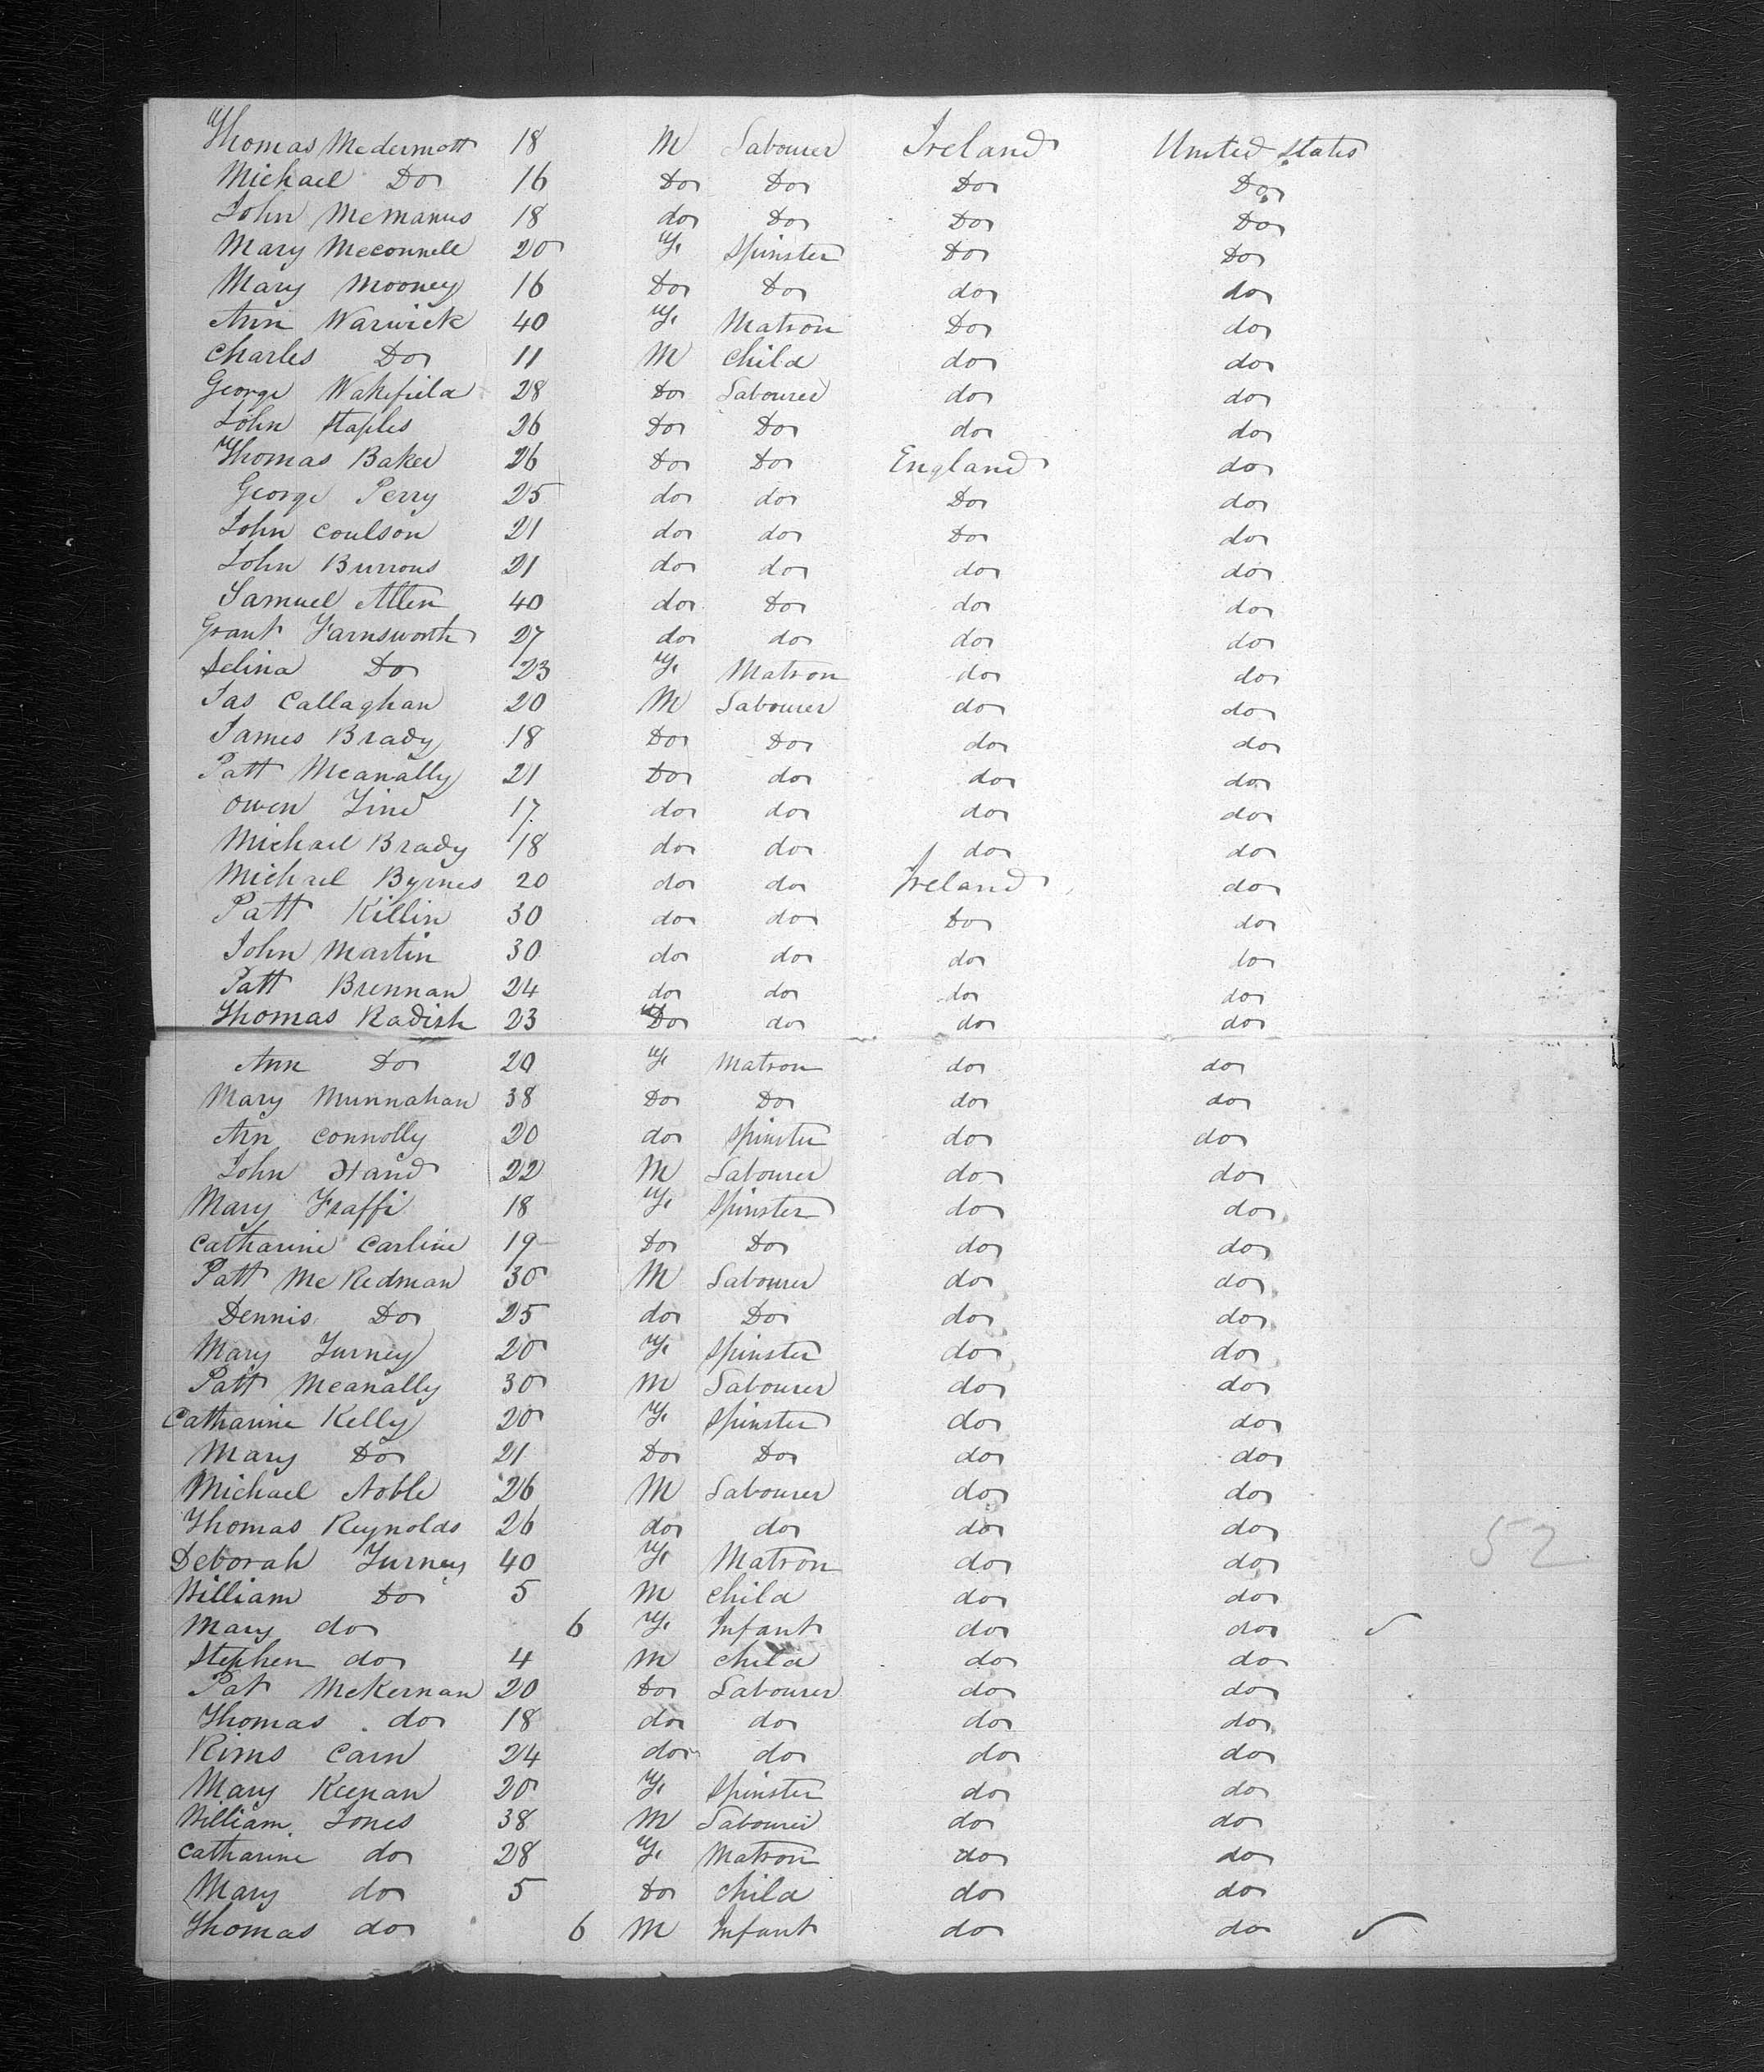 Thomas Mcdermott 18 M Labourer Ireland United States
Michael Do 16 Do Do Do Do
John McManus 18 do Do Do Do
Mary Mcconnell 20 F. Spinster Do Do
Mary Mooney 16 Do Do do do
Ann Warwick 40 F. Matron Do do
Charles Do 11 M Child do do
George Wakefield 28 Do Labourer do do
John Staples 26 Do Do do do
Thomas Baker 26 Do Do England do
George Perry 25 do do Do do
John Coulson 21 do do Do do
John Burrous 21 do do do do
Samuel Allen 40 do Do do do
Grant Farnsworth 27 do do do do
Selina Do 23 F. Matron do do
Jas Callaghan 20 M Labourer do do
James Brady 18 Do Do do do
Patt Mcanally 21 Do do do do
Owen Fine 17 do do do do
Michael Brady 18 do do do do
Michael Byrnes 20 do do Ireland do
Patt Killin 30 do do Do do
John Martin 30 do do do do
Patt Brennan 24 do do do do
Thomas Radish 23 Do do do do
Ann Do 20 F. Matron do do
Mary Munnahan 38 Do Do do do
Ann Connolly 20 do Spinster do do
John Hand 22 M Labourer do do
Mary Fraffi 18 F. Spinster do do
Catharine Carline 19 Do Do do do
Patt McRedman 30 M Labourer do do
Dennis Do 25 do Do do do
Mary Furney 20 F. Spinster do do
Patt Mcanally 30 M Labourer do do
Catharine Kelly 20 F. Spinster do do
Mary Do 21 Do Do do do
Michael Noble 26 M Labourer do do
Thomas Reynolds 26 do do do do
Deborah Furney 40 F. Matron do do 52
William Do 5 M Child do do
Mary do 6 F. Infant do do ✓
Stephen do 4 M Child do do
Pat McKernan 20 Do Labourer do do
Thomas do 18 do do do do
Rims Carn 24 do do do do
Mary Keenan 20 F. Spinster do do
William Jones 38 M Labourer do do
Catharine do 28 F. Matron do do
Mary do 5 Do Child do do
Thomas do 6 M Infant do do ✓